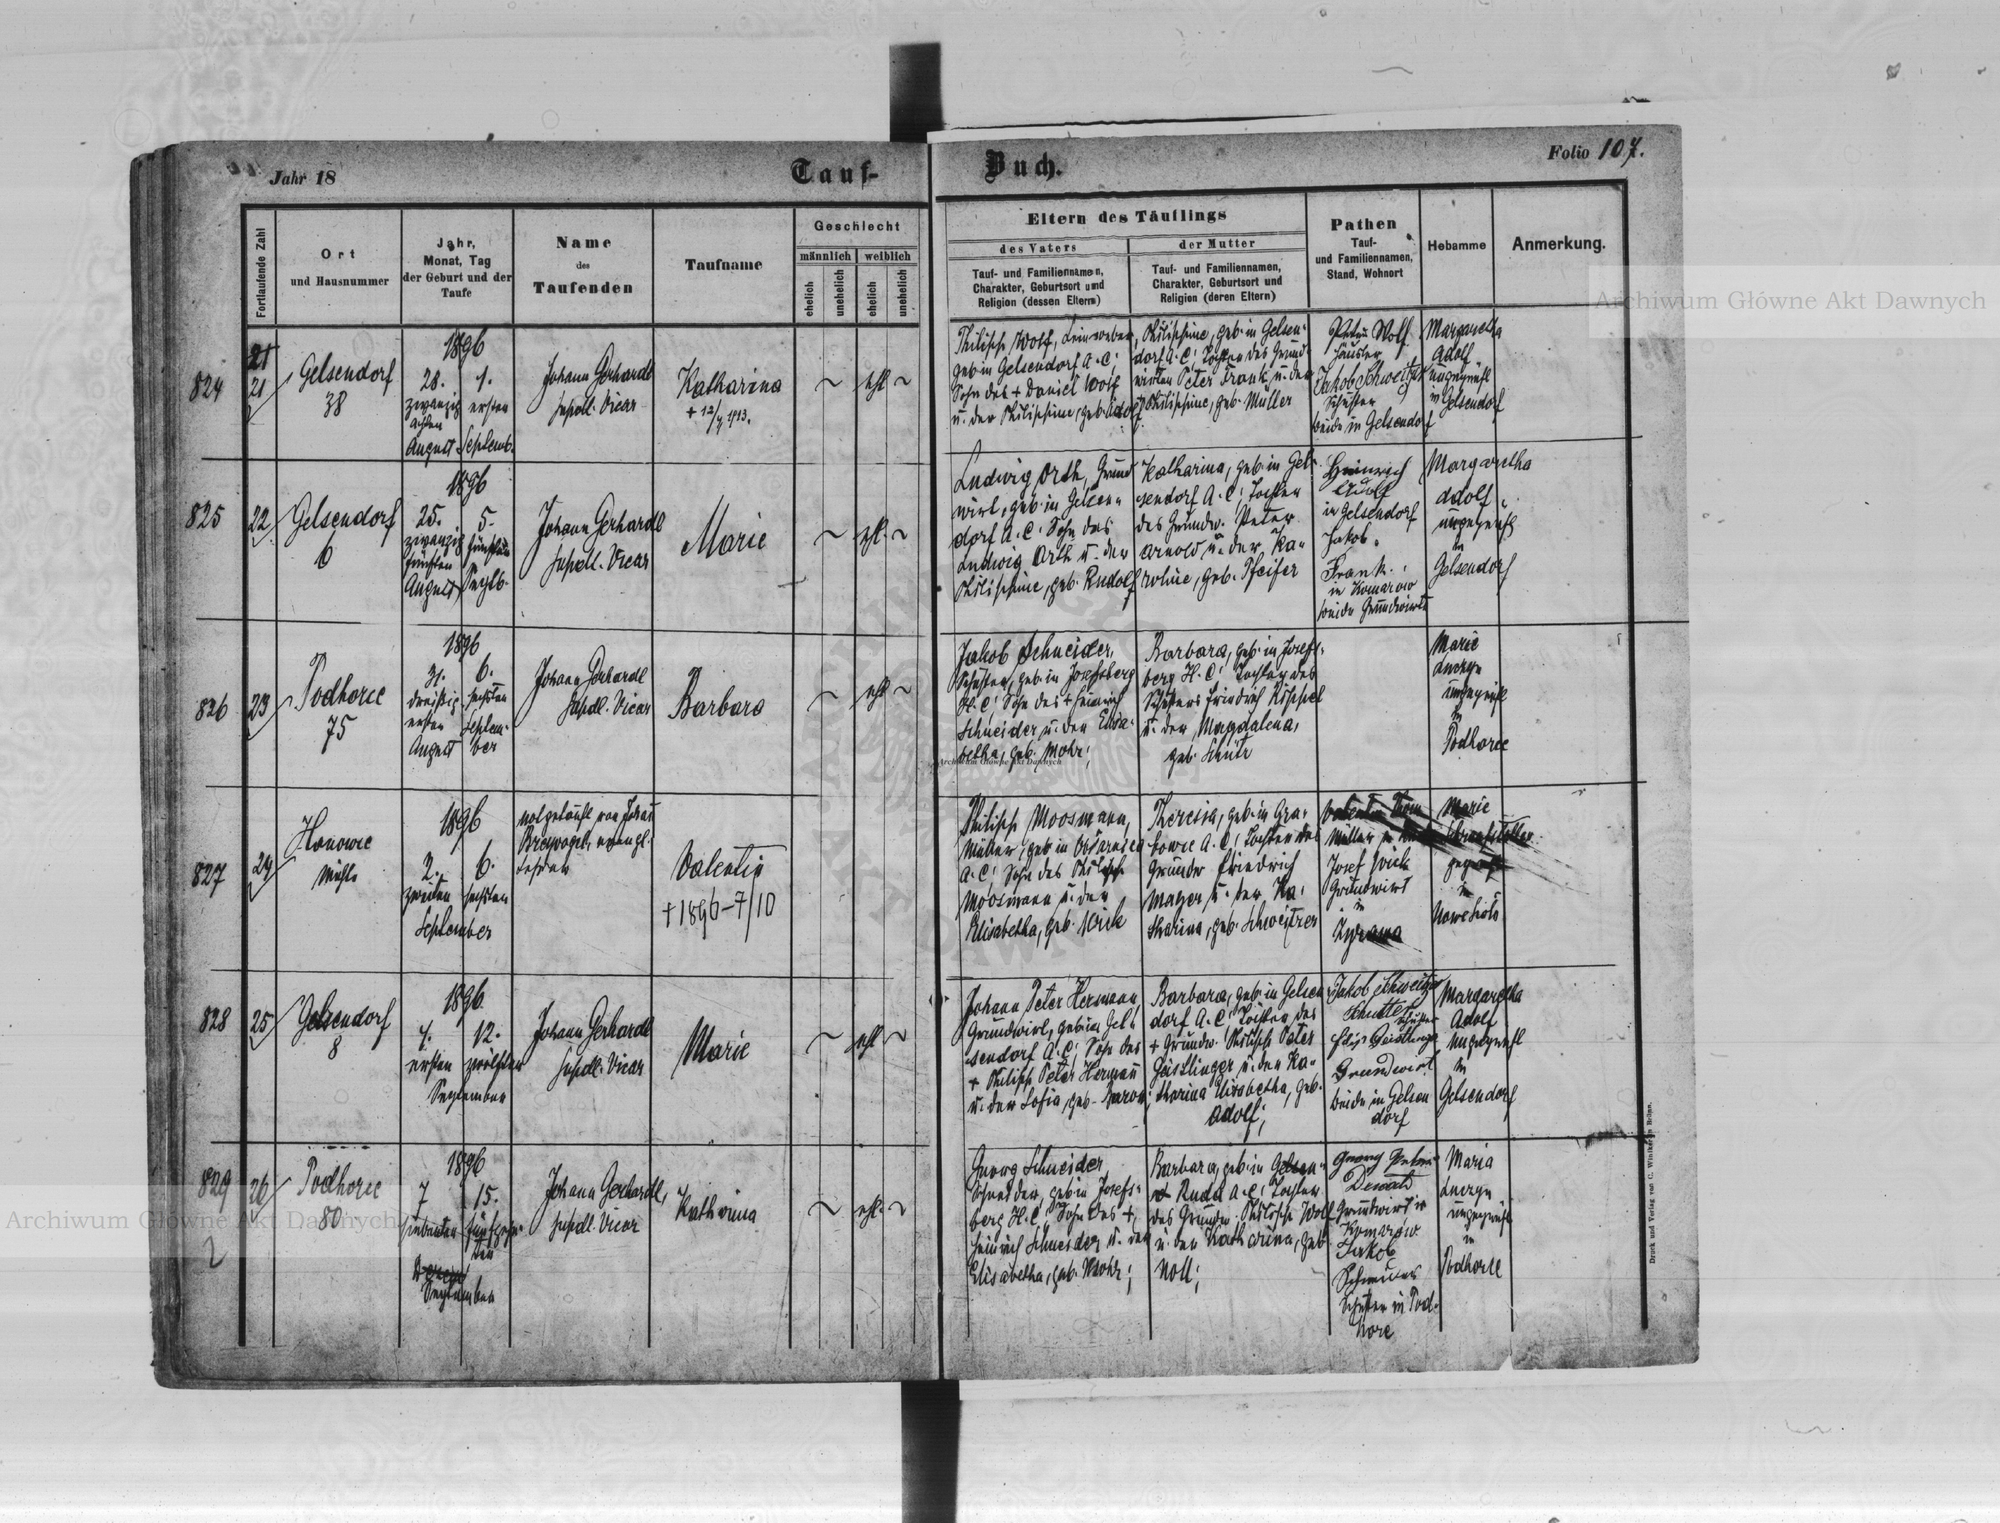 Jahr 18
Tauf-
Buch.
Folio 107.
Fortlaufende Zahl
Ort
und Hausnummer
Jahr,
Monat, Tag
der Geburt und der
Taufe
Name
des
Taufenden
Taufname
Geschlecht
männlich
weiblich
ehelich
unehelich
ehelich
unehelich
Eltern des Täuflings
des Vaters
Tauf- und Familiennamen,
Charakter, Geburtsort und
Religion (dessen Eltern)
der Mutter
Tauf- und Familiennamen,
Charakter, Geburtsort und
Religion (deren Eltern)
Pathen
Tauf-
und Familiennamen,
Stand, Wohnort
Hebamme
Anmerkung.
824
21
21
Gelsendorf
38
1896
28. 1.
zwanzig ersten
achten
August Septemb.
Johann Gerhardt
Vicar
Katharina
ehl.
Philipp Wolf, Leinweber,
geb. in Gelsendorf A. C.;
Sohn des + Daniel Wolf
u. der Philippine, geb. Adolf
Philippine, geb. in Gelsen-
dorf A. C.; Tochter des Grund-
wirten Peter Frank u. der
Philippine, geb. Müller
Peter Wolf
Häusler
Jakob Schweitzer
Schuster
beide in Gelsendorf
Margaretha
Adolf
ungeprüft
in Gelsendorf
825
22
Gelsendorf
6
1896
25. 5.
zwanzig fünften
fünften
August Septb.
Johann Gerhardt
Vicar
Marie
ehl.
Ludwig Orth, Grund
wirt, geb. in Gelsen-
dorf A. C.; Sohn des
Ludwig Orth u. der
Philippine, geb. Rudolf
Katharina, geb. in Gel-
sendorf A. C.; Tochter
des Grundw. Peter
Arnold u. der Ka-
roline, geb. Pfeifer
Heinrich
Adolf
in Gelsendorf
Jakob
Frank
in Komarow
beide Grundwirte
Margaretha
Adolf
ungeprüft
in
Gelsendorf
826
23
Podhorce
75
1896
31. 6.
dreißig sechsten
ersten Septem-
August ber
Johann Gerhardt
Vicar
Barbara
ehl.
Jakob Schneider,
Schuster, geb. in Josefsberg
H. C.; Sohn des + Heinrich
Schneider u. der Elisa-
betha, geb. Mohr;
Barbara, geb. in Josefs-
berg H. C.; Tochter des
Schusters Friedrich Rippel
u. der Magdalena,
geb. Schütz
Marie
ungeprüft
in
Podhorce
827
24
Honowce
Mühle
1896
2. 6.
zweiten sechsten
September
notgetauft von Johann
Breyvogel, evangl.
Lehrer
Valentin
+ 1896-7/10
Philipp Moosmann,
Müller, geb. in
A. C.; Sohn des Philipp
Moosmann u. der
Elisabetha, geb.
Theresia, geb. in Gra-
bowce A. C.; Tochter des
Grundw. Friedrich
Mayer u. der Ka-
tharina, geb. Schweitzer
Müller
Josef
Grundwirt
in
Marie
in
828
25
Gelsendorf
8
1896
1. 12.
ersten zwölften
September
Johann Gerhardt
Vicar
Marie
ehl.
Johann Peter Hermann,
Grundwirt, geb. in Gel-
sendorf A. C.; Sohn des
+ Philipp Peter Hermann
u. der Sofia, geb. Baron;
Barbara, geb. in Gelsen
dorf A. C.; Tochter des
+ Grundw. Philipp Peter
Geistlinger u. der Ka-
tharina Elisabetha, geb.
Adolf;
Jakob Schweitzer
Schuster
Filip Geistlinger
Grundwirt
beide in Gelsen
dorf
Margaretha
Adolf
ungeprüft
in
Gelsendorf
829
26
Podhorce
80
1896
7 15.
siebenten fünfzehn
ten
September
Johann Gerhardt,
Vicar
Katharina
ehl.
Georg Schneider,
Schneider, geb. in Josefs-
berg H. C.; Sohn des +
Heinrich Schneider u. der
Elisabetha, geb. Mohr;
Barbara, geb. in
Ruda A. C.; Tochter
des Grundw. Philipp Wolf
u. der Katharina, geb.
Noll;
Georg Peter
Grundwirt in
Komarow
Jakob
Schneider
Schuster in Pod-
horce
Maria
ungeprüft
in
Podhorce
Druck und Verlag von C. Winiker in Brünn.
Archiwum Główne Akt Dawnych
Archiwum Główne Akt Dawnych
Archiwum Główne Akt Dawnych